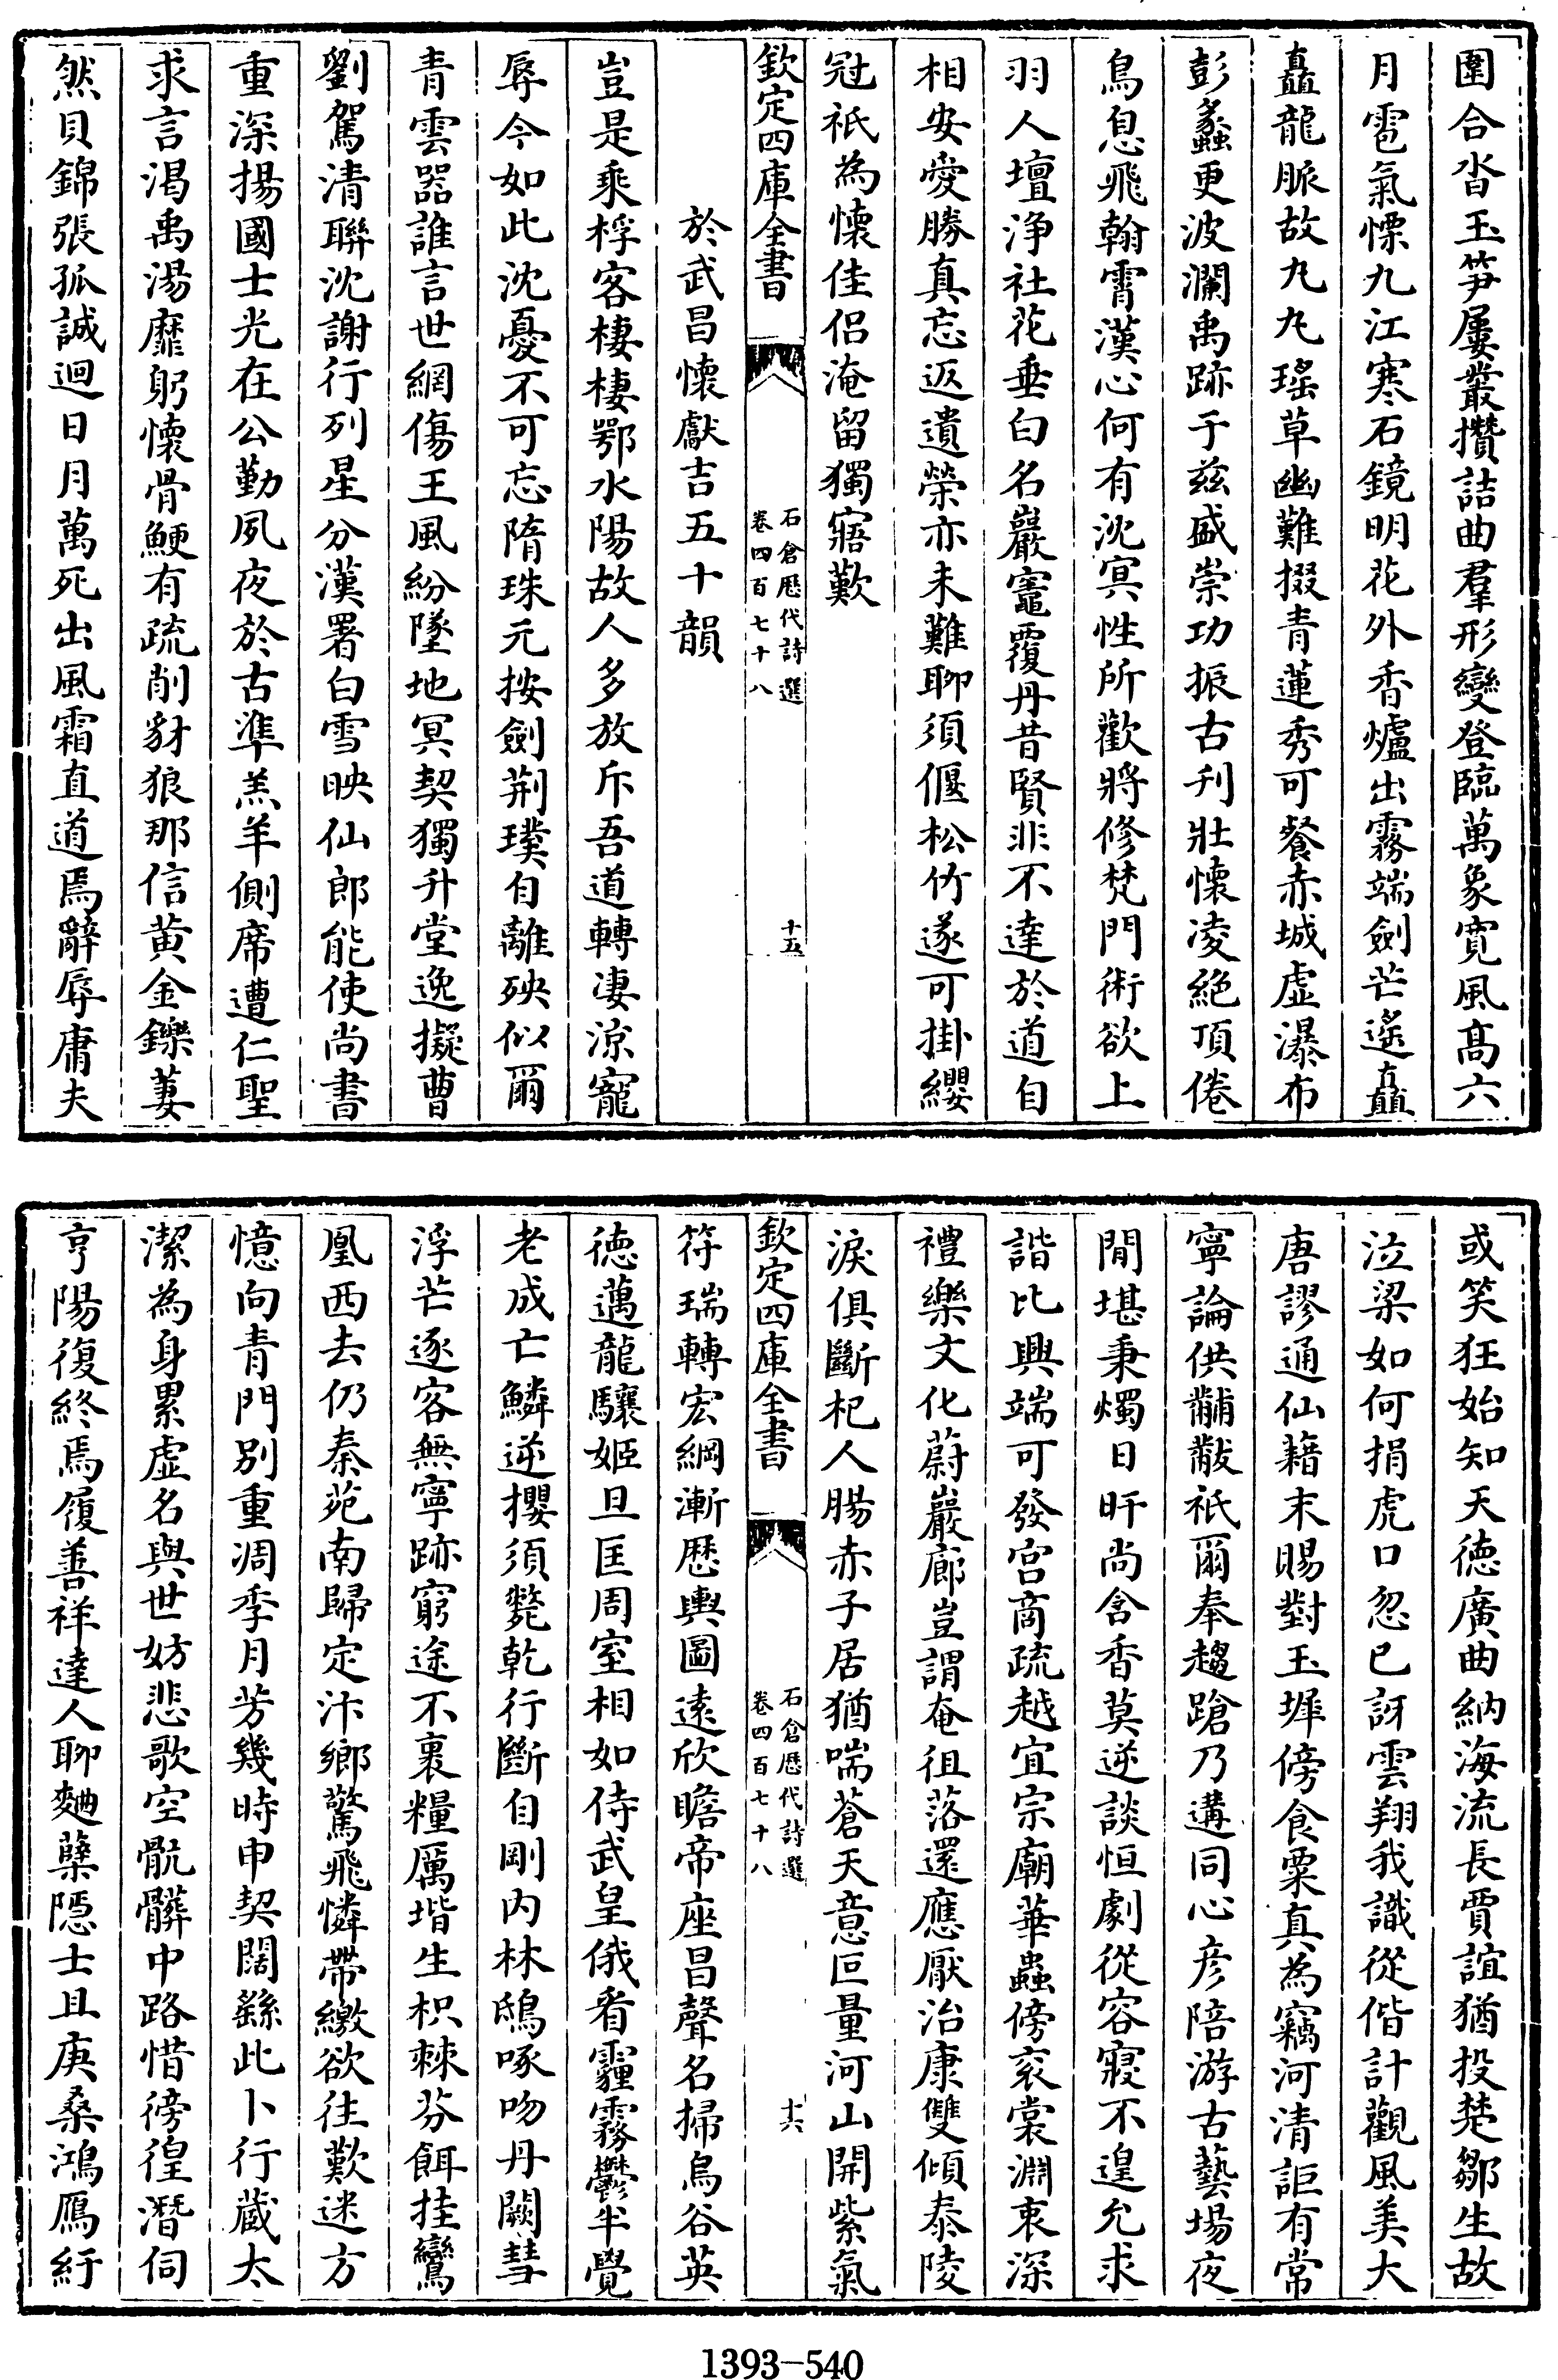 圍合沓玉笋屢叢攢詰曲羣形變登臨萬象寛風髙六
月雹氣慄九江寒石鏡明花外香爐出霧端劍芒遙矗
矗龍脈故九九瑤草幽難掇青蓮秀可餐赤城虚瀑布
彭蠡更波瀾禹跡于兹盛崇功振古刋壯懐凌絶頂倦
鳥息飛翰霄漢心何有沈㝠性所歡將修梵門術欲上
羽人壇浄社花垂白名巖竈覆丹昔賢非不達於道自
相安愛勝真忘返遺榮亦未難聊須偃松竹遂可掛纓
冠祇為懐佳侣淹留獨寤歎
欽定四庫全書
石倉歴代詩選
卷四百七十八
十五
於武昌懐獻吉五十韻
豈是乘桴客棲棲鄂水陽故人多放斥吾道轉凄涼寵
辱今如此沈憂不可忘隋珠元按劍荆璞自離殃似爾
青雲器誰言世網傷王風紛墜地㝠契獨升堂逸擬曹
劉駕清聯沈謝行列星分漢署白雪映仙郎能使尚書
重深揚國士光在公勤夙夜於古凖羔羊側席遭仁聖
求言渴禹湯靡躬懐骨鯁有疏削豺狼那信黄金鑠萋
然貝錦張孤誠迴日月萬死出風霜直道焉辭辱庸夫
或笑狂始知天徳廣曲納海流長賈誼猶投楚鄒生故
泣梁如何捐虎口忽已訝雲翔我識從偕計觀風美大
唐謬通仙籍末賜對玉墀傍食粟真為竊河清詎有常
寧論供黼黻祇爾奉趨蹌乃遘同心彦陪游古藝場夜
閒堪秉燭日旰尚含香莫逆談恒劇從容寢不遑允求
諧比興端可發宫商疏越宜宗廟華蟲傍衮裳淵衷深
禮樂文化蔚巖廊豈謂奄徂落還應厭治康雙傾泰陵
淚俱斷杞人腸赤子居猶喘蒼天意叵量河山開紫氣
欽定四庫全書
石倉歴代詩選
卷四百七十八
十六
符瑞轉宏綱漸歴輿圖遠欣瞻帝座昌聲名掃烏谷英
徳邁龍驤姬旦匡周室相如侍武皇俄看霾霧鬱半覺
老成亡鱗逆攖須斃乾行斷自剛内林鴟啄吻丹闕彗
浮芒逐客無寧跡窮途不裹糧厲堦生枳棘芬餌挂鸞
凰西去仍秦苑南歸定汴鄉驚飛憐帶繳欲往歎迷方
憶向青門别重凋季月芳幾時申契闊繇此卜行藏太
潔為身累虚名與世妨悲歌空骯髒中路惜徬徨潛伺
亨陽復終焉履善祥達人聊麯蘖隠士且庚桑鴻鴈紆
1393-540